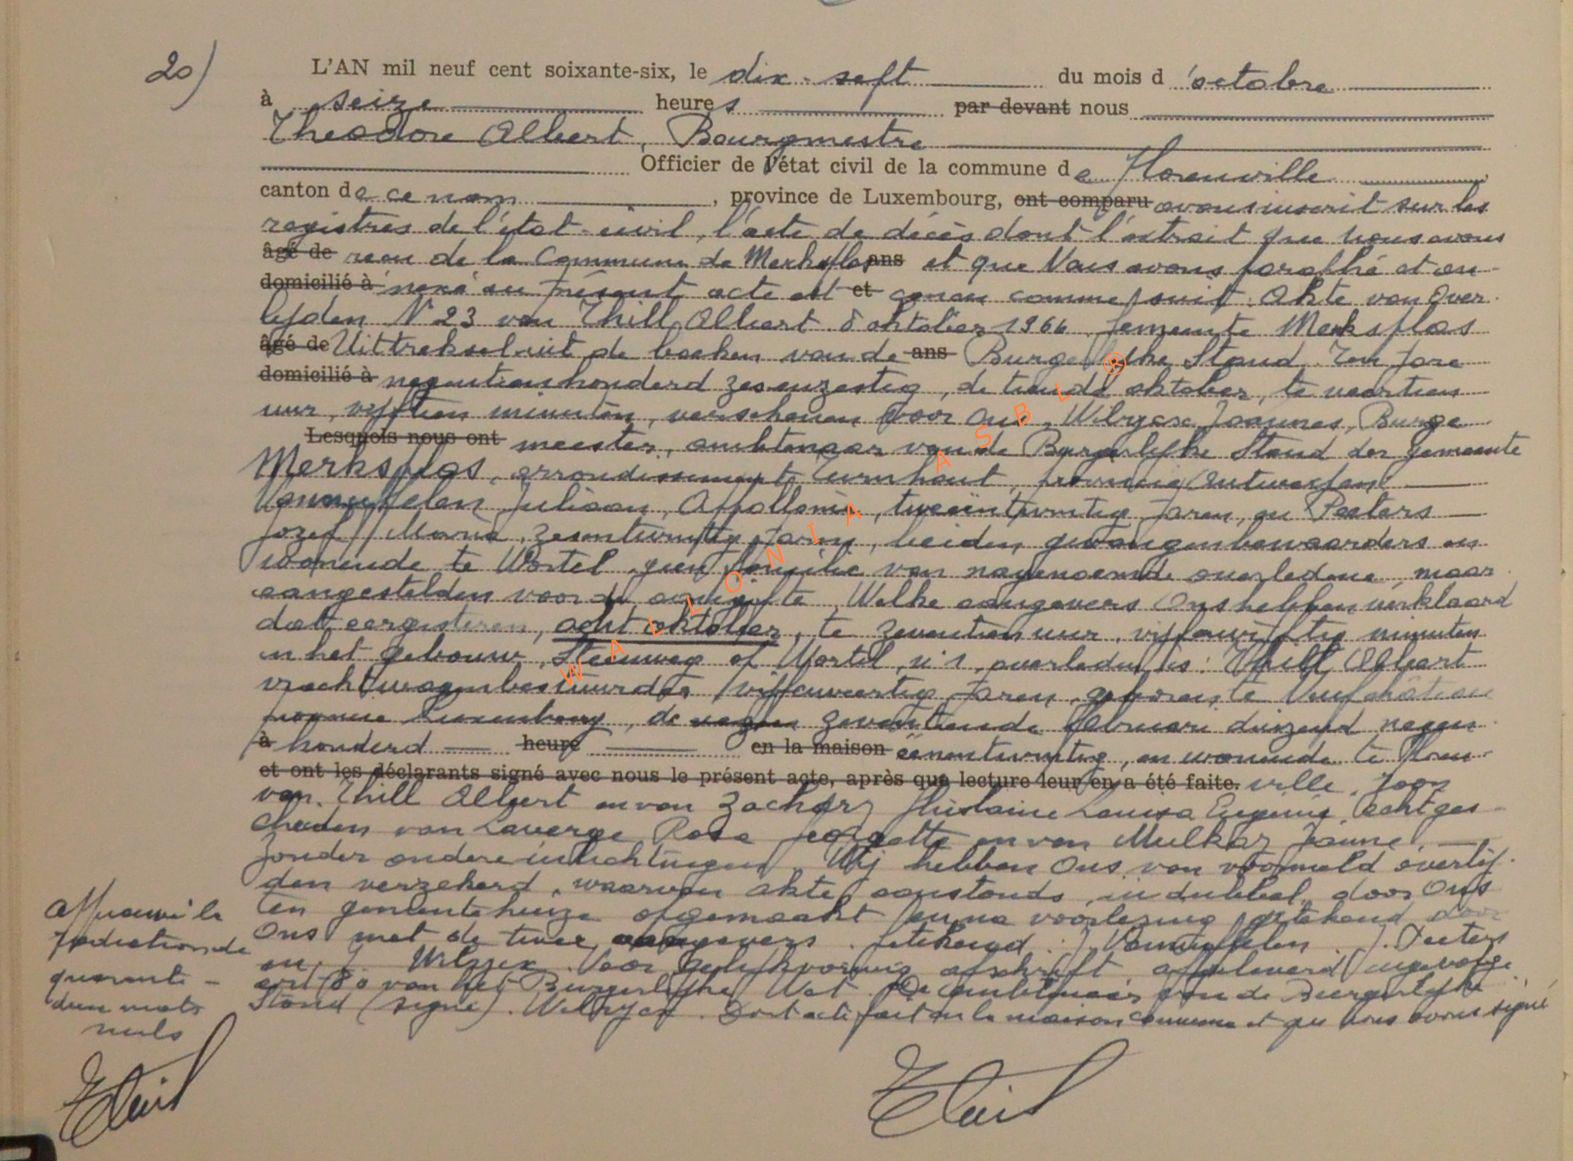 20)
L'AN mil neuf cent soixante-six, le dix-sept du mois d'octobre
à seize heures par devant nous
Theodore Albert, Bourgmestre
Officier de l'état civil de la commune de Florenville
canton de ce nom, province de Luxembourg, ont comparu avons inscrit sur les
registres de l'état-civil, l'acte de décès dont l'extrait que nous avons
âgé de recu de la Commune de Merksplas ans et que Nous avons paraphé et an-
domicilié à nexé au présent acte est et conçu comme suit. Akte van Over-
lijden N°23 van Thill Albert 8 oktober 1966 Gemeente Merksplas
âgé de Uittreksel uit de boeken van de ans Burgerlijke Stand. Ten jare
domicilié à negentienhonderd zesenzestig, de tiende oktober, te veertien
uur, vijftien minuten, verschenen voor ons, Wilrycx Joannes, Burge-
Lesquels nous ont meester, ambtenaar van de Burgerlijke Stand der gemeente
Merksplas, arrondissement Turnhout, provincie Antwerpen
Juliaan, Appollonia, tweeëntwintig jaren, en Peeters
Jozef Maria, zesentwintig jaren, beiden gevangenbewaarders en
wonende te Wortel, geen familie van nagenoemde overledene, maar
aangestelden voor de aangifte. Welke aangevers Ons hebben verklaard
dat eergisteren, acht oktober, te zeventien uur, vijfenvijftig minuten
in het gebouw, Steenweg op Wortel, n° 1, overleden is: Thill Albert
vrachtwagenbestuurder, vijfenveertig jaren, geboren te Neufchâteau
provincie Luxemburg, de zeventiende februari duizend negen-
à honderd heure en la maison eenentwintig, en wonende te Floren-
et ont les déclarants signé avec nous le présent acte, après que lecture leur en a été faite. ville, zoon
van Thill Albert en van Zachary Ghislaine Louisa Eugenie, echtges-
cheiden van Laverge Rosa Georgette en van Mulkaz Jeanne
zonder andere inlichtingen. Wij hebben Ons van voormeld overlij-
den verzekerd, waarvan akte aanstonds, in dubbel, door Ons
ten gemeentehuize opgemaakt en na voorlezing getekend door
Ons met de twee aangevers. Getekend: J. J. Peeters
en J. Wilrycx. Voor gelijkvormig afschrift afgeleverd ingevolge
art. 80 van het Burgerlijke Wet. De ambtenaar van de Burgerlijke
Stand (signé). Wilrycx. Dont acte fait en la maison commune et que nous avons signé
Approuvé la
radiation de
quarante-
deux mots
nuls
WALLONIA ASBL ®